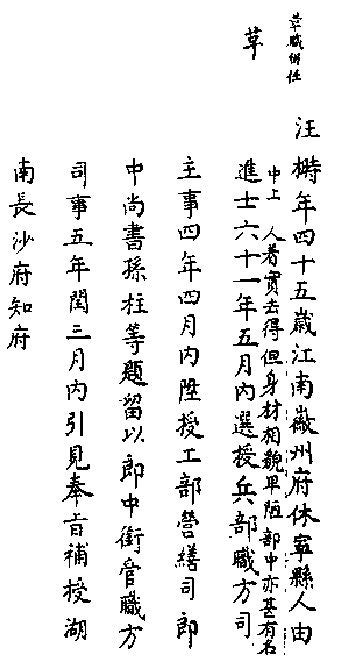 革職併任
革
汪㮣年四十五歲江南徽州府休寧縣人由
中上　人着實去得但身材相貌卑陋部中亦甚有名
進士六十一年五月內選授兵部職方司
主事四年四月內陞授工部營繕司郎
中尚書孫柱等題留以郎中銜管職方
司事五年閏三月內引見奉旨補授湖
南長沙府知府